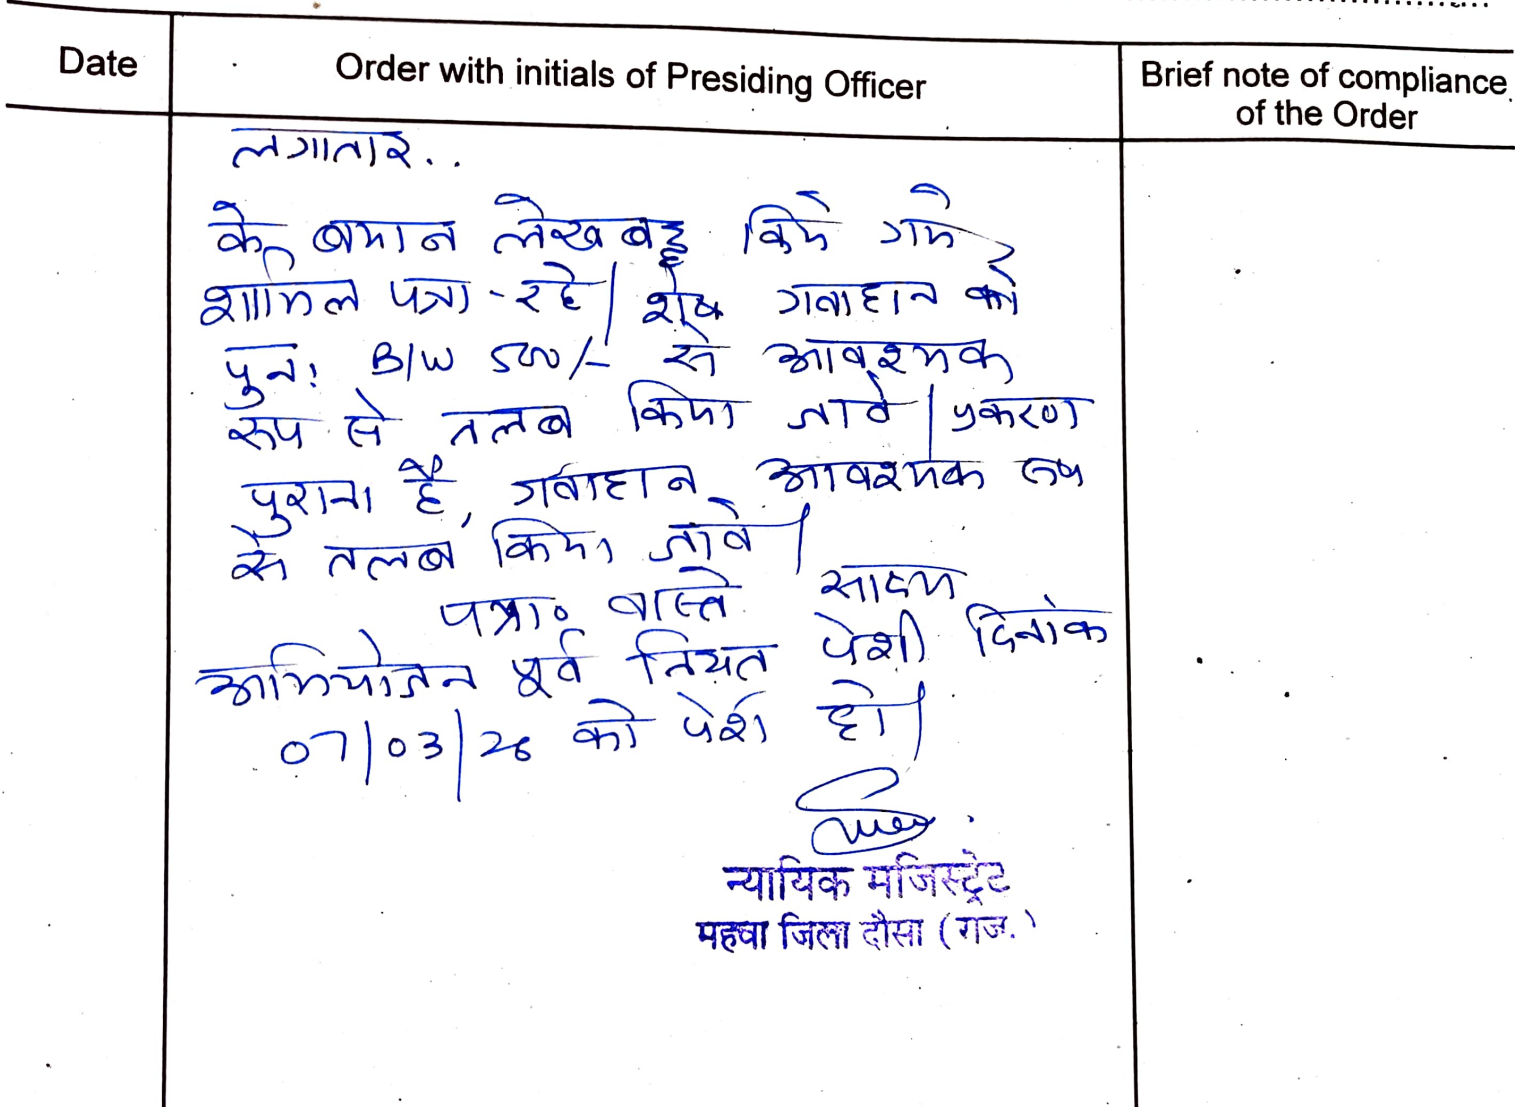 Date
Order with initials of Presiding Officer
Brief note of compliance
of the Order
लगातार..
के बयान लेखबद्ध किये गये
शामिल पत्रा - रहे। शेष गवाहान को
पुन: B/W 500/- से आवश्यक
रूप से तलब किया जावे। प्रकरण
पुराना है, गवाहान आवश्यक रूप
से तलब किया जावे।
पत्रा० वास्ते साक्ष्य
अभियोजन पूर्व नियत पेशी दिनांक
07/03/26 को पेश हो।
न्यायिक मजिस्ट्रेट
महवा जिला दौसा (राज.)